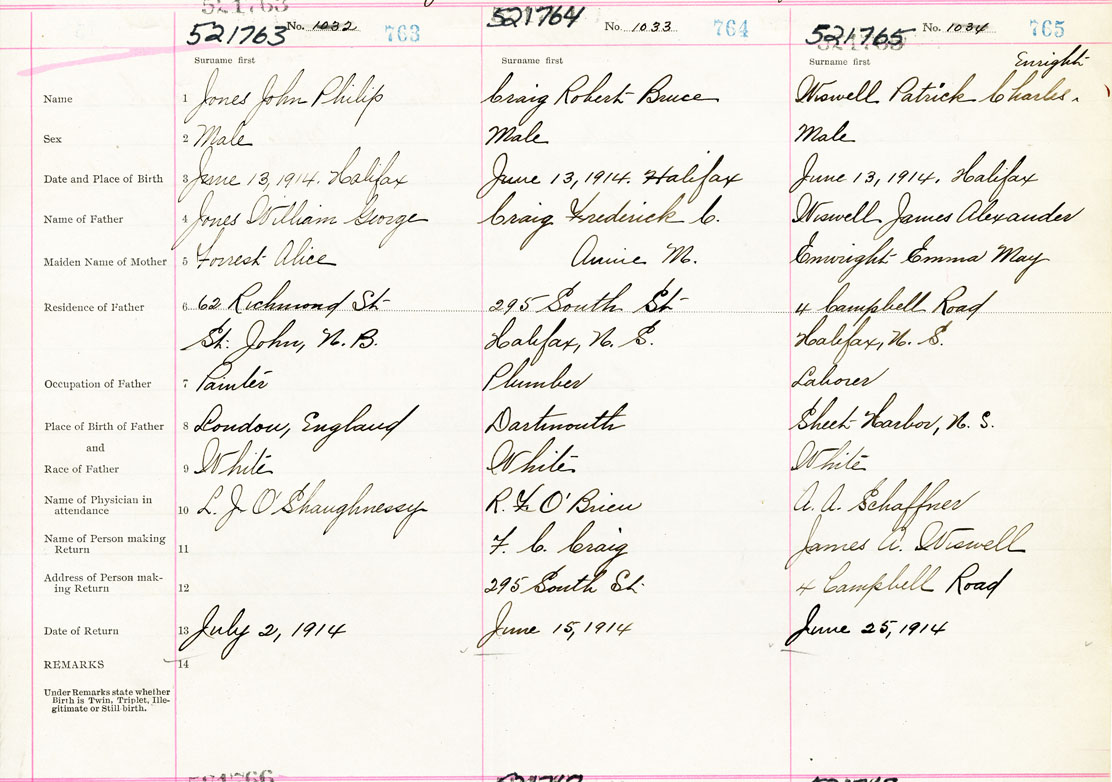 521763 521764 521765
521763 No. 1032 763 521764 No. 1033 764 521765 No. 1034 765
Surname first Surname first Surname first Enright
Name 1 Jones John Philip Craig Robert Bruce Wiswell Patrick Charles
Sex 2 Male Male Male
Date and Place of Birth 3 June 13, 1914. Halifax June 13, 1914. Halifax June 13, 1914. Halifax
Name of Father 4 Jones William George Craig Frederick C. Wiswell James Alexander
Maiden Name of Mother 5 Forrest Alice Annie M. Enwright Emma May
Residence of Father 6 62 Richmond St. 295 South St. 4 Campbell Road
St. John, N. B. Halifax, N. S. Halifax, N. S.
Occupation of Father 7 Painter Plumber Laborer
Place of Birth of Father 8 London, England Dartmouth Sheet Harbor, N. S.
and
Race of Father 9 White White White
Name of Physician in
attendance 10 L. J. O'Shaughnessy R. F. O'Brien A. A. Schaffner
Name of Person making
Return 11 F. C. Craig James A. Wiswell
Address of Person mak-
ing Return 12 295 South St. 4 Campbell Road
Date of Return 13 July 2, 1914 June 15, 1914 June 25, 1914
REMARKS 14
Under Remarks state whether
Birth is Twin, Triplet, Ille-
gitimate or Still birth.
521766